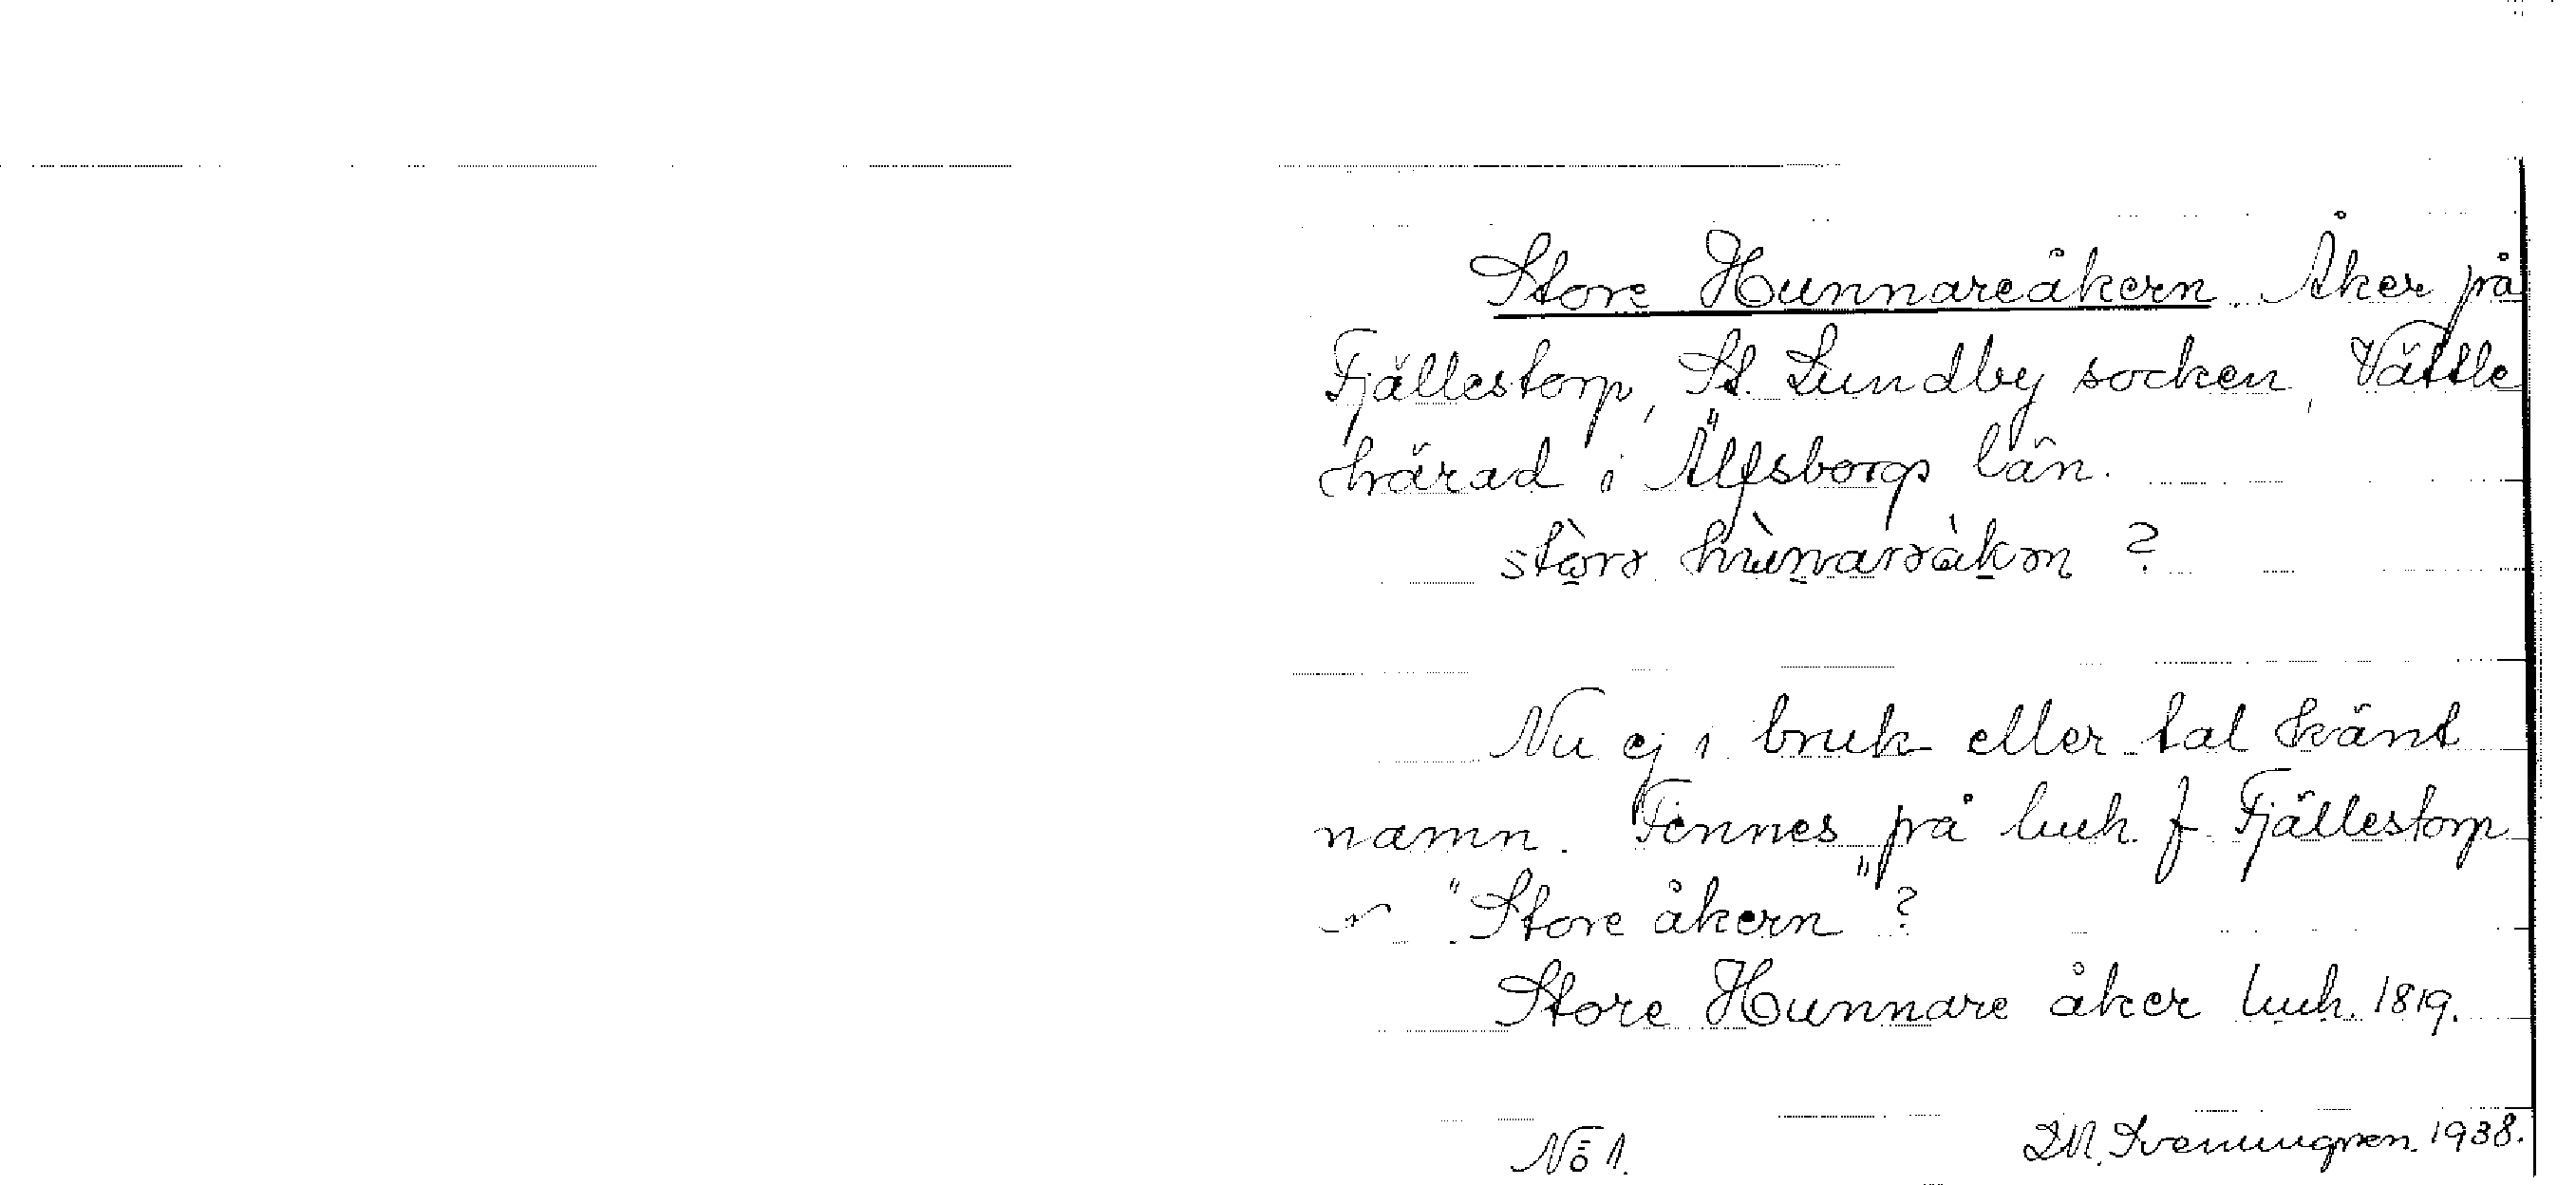 Store Hunnareåkern. Åker på
Fjällestorp, St. Lundby socken, Vättle
härad i Älfsborgs län.
?
Nu ej i bruk eller tal känt
namn. Finnes på luh. f. Fjällestorp
"Store åkern"?
Store Hunnare åker luh. 1819.
No 1.
1938.